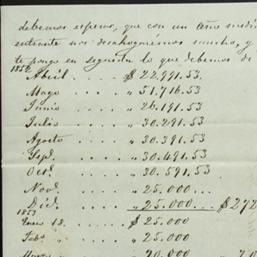 debemos esperar, que con un año medio
entrante nos desahoguémos mucho, y
te pongo en seguida lo que debemos de
1852
Abril . . . $ 22,991.53
Mayo . . . „ 51,716.53
Junio . . . „ 26,191.53
Julio . . . „ 30,291.53
Agosto . . . „ 30,391.53
Sepe. . . . „ 30,491.53
Oct. . . . „ 30,591.53
Nov. . . . . „ 25,000...
Dic. . . . . „ 25,000... $272
1853
Enro 13. . . . „ $25,000
Febo „ . . . . „ 25,000
„ 20,000